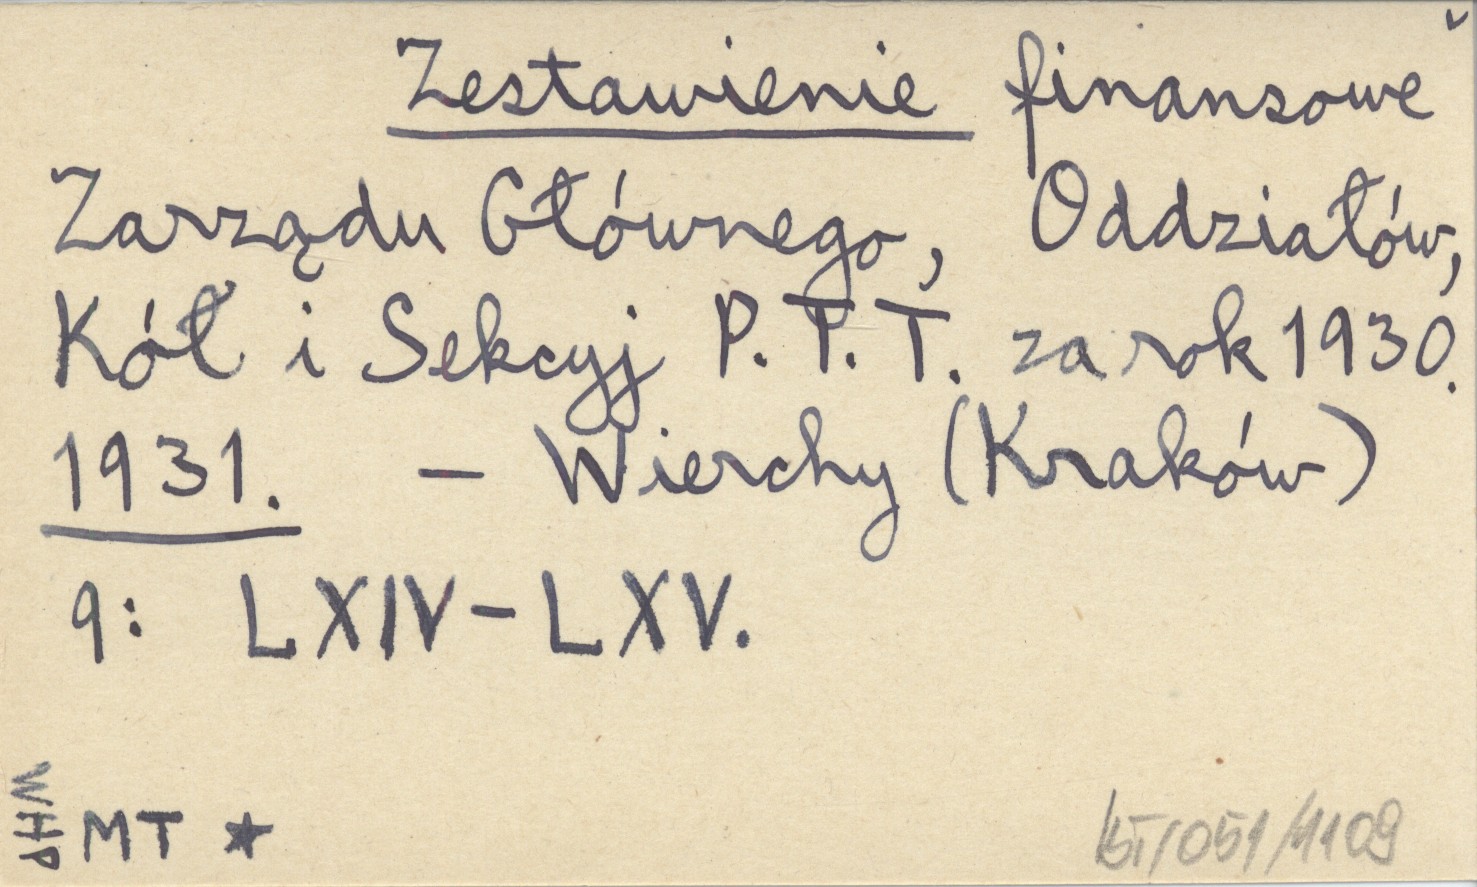 Zestawienie finansowe
Zarządu Głównego, Oddziałów,
Kół i Sekcyj P.T.T. za rok 1930.
1931. – Wierchy (Kraków)
9: LXIV – LXV.
WHP
MT ★
/051/1109